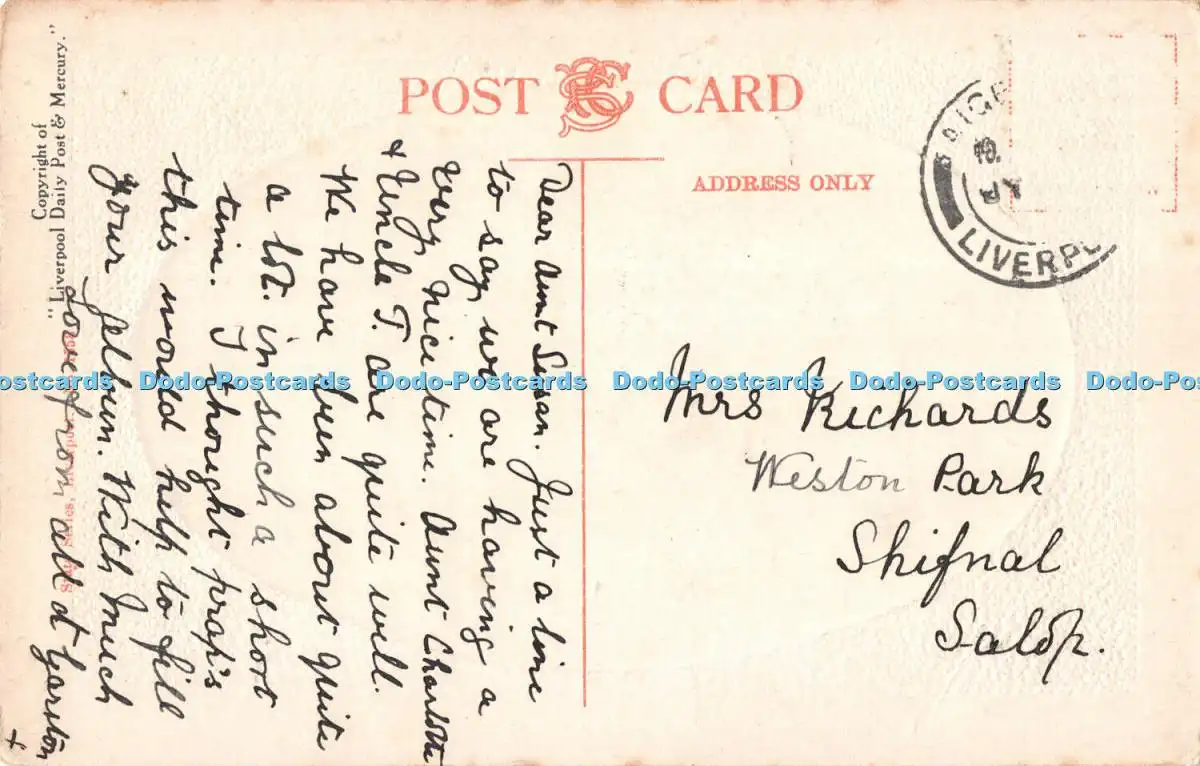 POST CARD
ADDRESS ONLY
Copyright of
"Liverpool Daily Post & Mercury."
LIVERPO
Dear Aunt Susan. Just a line
to say we are having a
very nice time. Aunt Charlotte
+ Uncle T. are quite well.
We have been about quite
a lot. in such a short
time. I thought prap's
this would help to fill
your Album. With much
love from all at Garston
+
Mrs Richards
Weston Park
Shifnal
Salop.
Dodo-Postcards Dodo-Postcards Dodo-Postcards Dodo-Postcards Dodo-Postcards